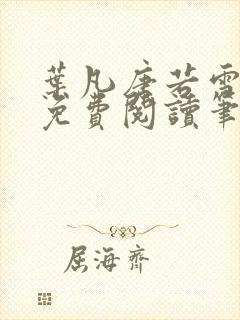 葉凡唐若雪
免費閱讀筆
屈海齊